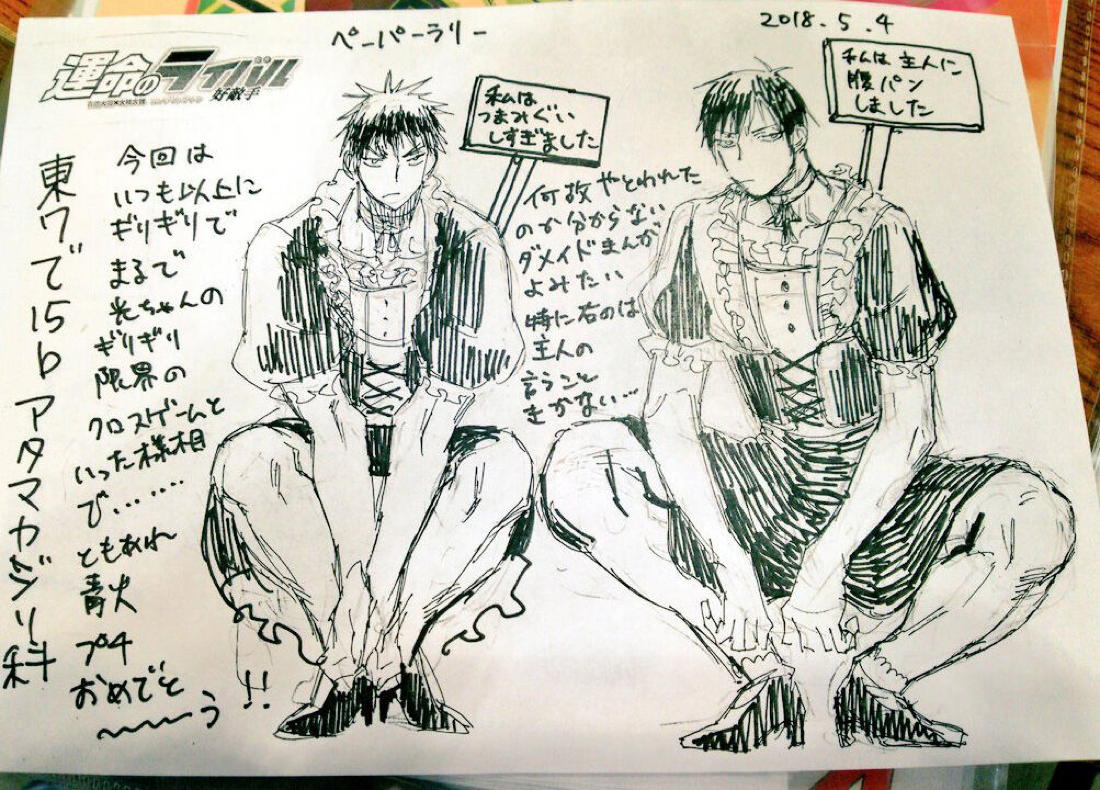 ペーパーラリー
2018.5.4
運命のライバル
好敵手
東ワで15b アタマカジリ科
今回は
いつも以上に
ギリギリで
まるで
光ちゃんの
ギリギリ
限界の
クロスゲームと
いった様相
で………
ともあれ
青火
プチ
おめでと
〜〜〜う!!
私は
つまみぐい
しすぎました
何故やとわれた
のか分からない
ダメイドまんが
よみたい
特に右のは
主人の
言うこと
きかない…
私は主人に
腹パン
しました